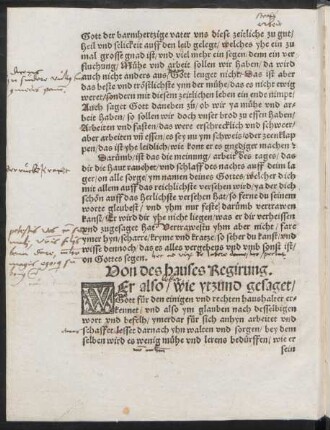 Gott der barmhertzige vater vns diese zeitliche zu gut/
heil vnd selickeit auff den leib gelegt/ welchs yhe ein zu
mal grosse gnad ist/ vnd viel mehr ein segen/ denn ein ver
fluchung/ Mühe vnd arbeit sollen wir haben/ da wird
auch nicht anders aus/ Gott leuget nicht/ Das ist aber
das beste vnd tröstlichste ynn der mühe/ das es nicht ewig
weret/ sondern mit diesem zeitlichen leben ein ende nimpt/
Auch saget Gott daneben zu/ ob wir ya mühe vnd ar-
beit haben/ so sollen wir doch vnser brod zu essen haben/
Arbeiten vnd fasten/ das were erschrecklich vnd schweer/
aber arbeiten vnd essen/ es sey ym schweis/ odder zeenklap
pen/ das ist yhe leidlich/ wie kont er es gnediger machen?
Darümb/ ist das die meinung/ arbeit des tages/ das
dir die haut rauche/ vnd schlaff des nachts auff dem la-
ger/ alles ym segen/ ym namen deines Gottes/ welcher dich
mit allem auff das reichlichste versehen wird/ ya der dich
schön auff das Herlichste versehen hat/ so ferne du seinem
worte gleubest/ vnd yhm nur feste darümb vertrawen
kanst/ Er wird dir yhe nicht liegen/ was er dir verheissen
vnd zugesaget hat/ Vertrawestu yhm aber nicht/ fare
ymer hyn/ scharre/ kryme vnd kratze/ so seher du kanst/ vnd
wisse dennoch/ das es alles vergebens vnd vmb sonst ist/
on Gottes segen.
Von des hauses Regirung.
WEr also/ wie ytzund gesaget/
Gott für den einigen vnd rechten haushalter er-
kennet/ vnd also ym glauben nach desselbigen
wort vnd befelh/ ymerdar für sich anhyn arbeitet vnd
schaffet/ lesset darnach yhn walten vnd sorgen/ bey dem
selben wird es wenig mühe vnd lerens bedürffen/ wie er
sein